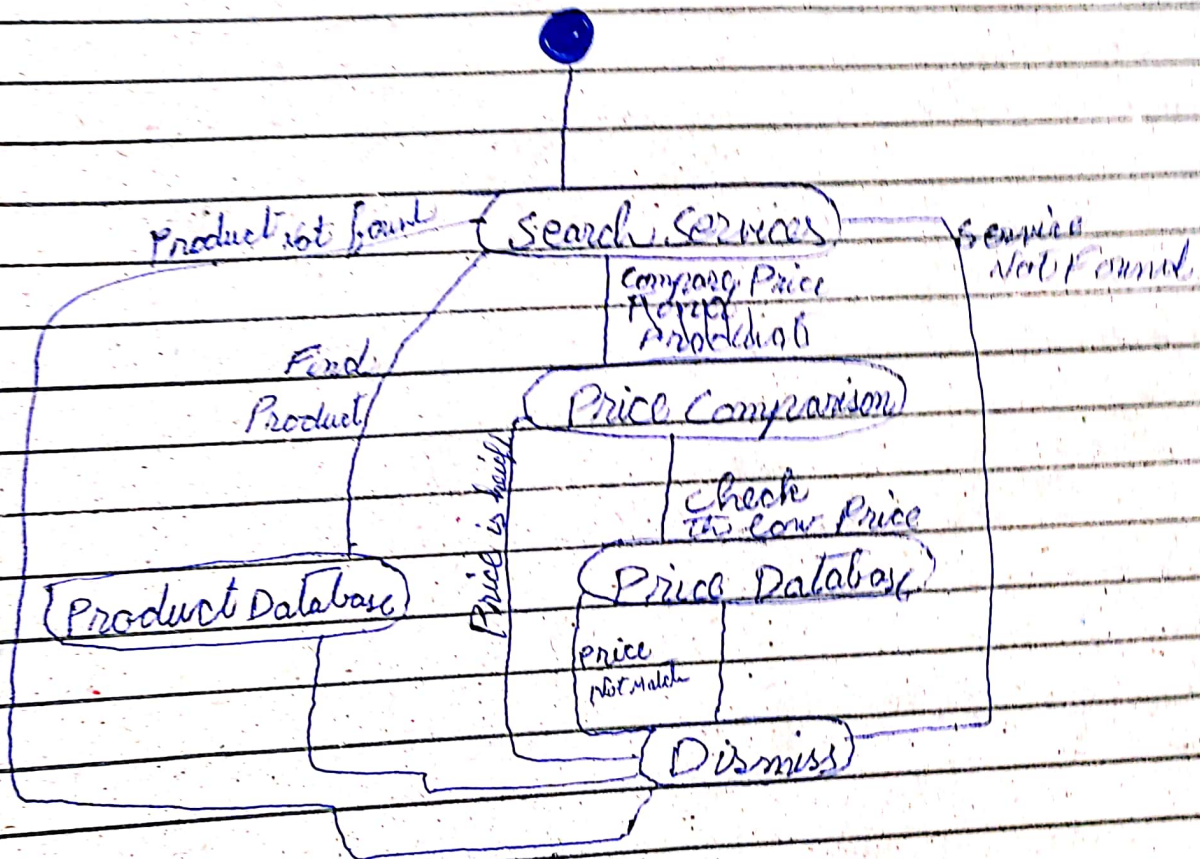 Product Not found
Search Services
Service
Not Found
Price
Find
Product
Price Comparison
Price is heigh
Check
Low Price
Product Database
Price Database
Price
Not Match
Dismiss